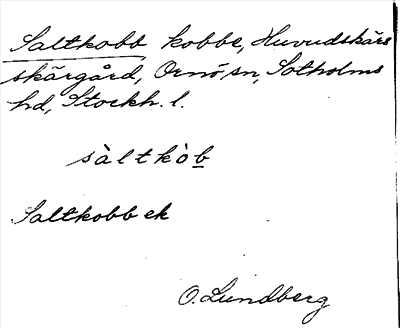 Saltkobb, kobbe, Huvudskärs
skärgård, Ornö sn, Sotholms
hd, Stockh. l.
sàltkòb
Saltkobb ek
O. Lundberg